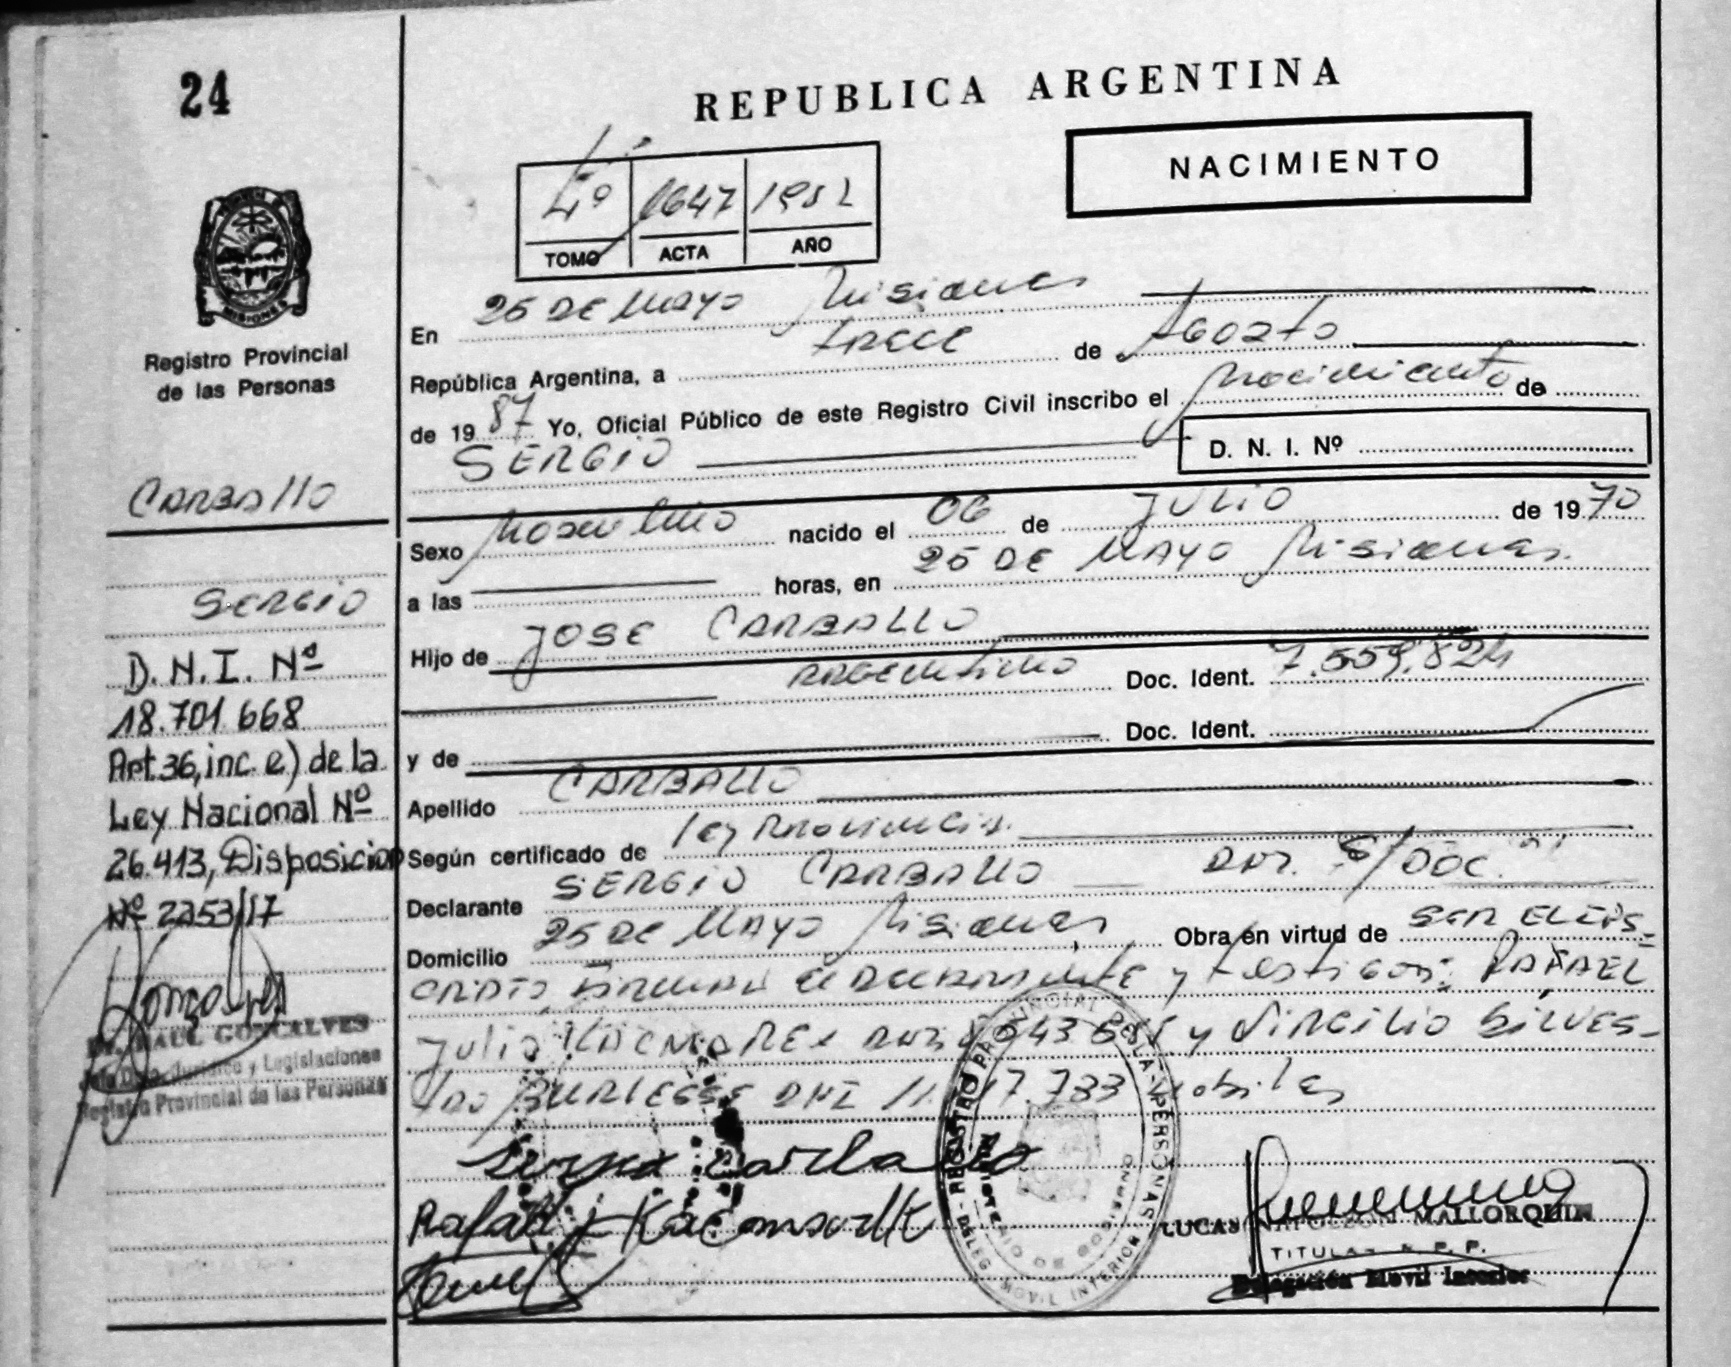 24
REPUBLICA ARGENTINA
NACIMIENTO
4º 1647
TOMO ACTA AÑO
Registro Provincial
de las Personas
MISIONES
CARBALLO
SERGIO
D.N.I. Nº
18.701.668
Art.36,inc.e) de la
Ley Nacional Nº
26.413, Disposicion
Nº 2253/17
RAUL GONCALVES
Dpto. Jurídico y Legislaciones
Registro Provincial de las Personas
En 25 DE MAYO Misiones
República Argentina, a trece de Agosto
de 1987 Yo, Oficial Público de este Registro Civil inscribo el Nacimiento de
SERGIO
D. N. I. Nº
Sexo Masculino nacido el 06 de JULIO de 1970
a las horas, en 25 DE MAYO Misiones.
Hijo de JOSE CARBALLO
ARGENTINO Doc. Ident. 7.559.824
y de Doc. Ident.
Apellido CARBALLO
Según certificado de ley Provincial.
Declarante SERGIO CARBALLO S/DOC.
Domicilio 25 DE MAYO Misiones Obra en virtud de
el declarante y testigos: RAFAEL
Julio y VIRGILIO SILVES-
DNI hábiles
Sergio Carballo
Rafael J
REGISTRO PROVINCIAL DE LAS PERSONAS
MINISTERIO DE GOBIERNO
DELEG. MOVIL INTERIOR
LUCAS NAPOLEON MALLORQUIN
TITULAR R. P. P.
Delegación Movil Interior